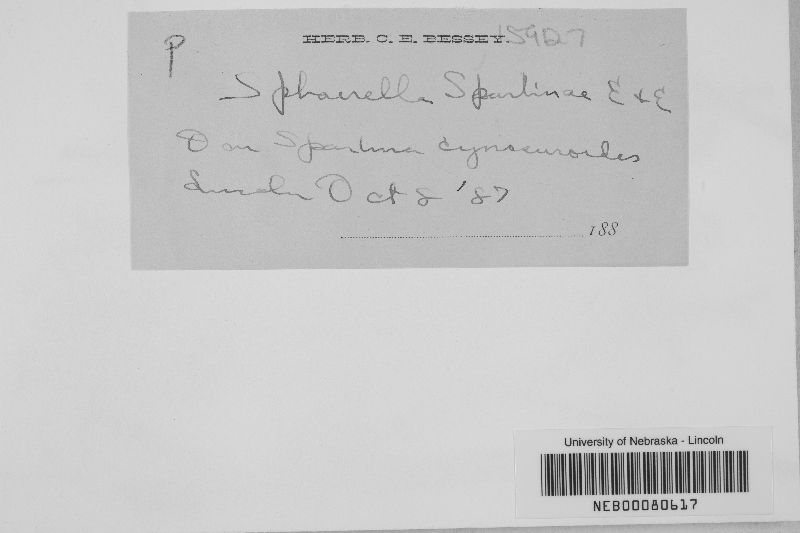 P
HERB. C. E. BESSEY. 159127
Sphaerella Spartinae E & E
On Spartina cynosuroides
Lincoln Oct 8 '87
188
University of Nebraska - Lincoln
NEB00080617